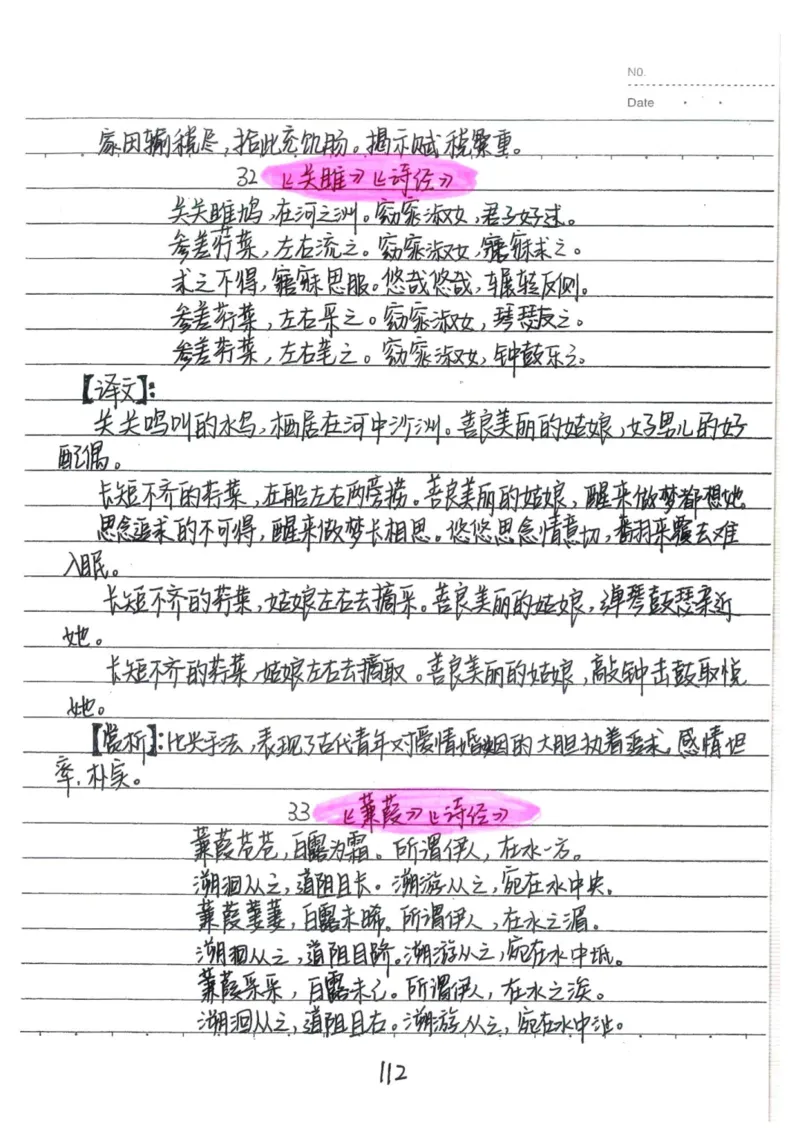 NO.
Date
家田输税尽，拾此充饥肠。揭示赋税繁重。
32 《关雎》《诗经》
关关雎鸠，在河之洲。窈窕淑女，君子好逑。
参差荇菜，左右流之。窈窕淑女，寤寐求之。
求之不得，寤寐思服。悠哉悠哉，辗转反侧。
参差荇菜，左右采之。窈窕淑女，琴瑟友之。
参差荇菜，左右芼之。窈窕淑女，钟鼓乐之。
【译文】：
关关鸣叫的水鸟，栖居在河中沙洲。善良美丽的姑娘，好男儿的好
配偶。
长短不齐的荇菜，在船左右两旁捞。善良美丽的姑娘，醒来做梦都想她。
思念追求的不可得，醒来做梦长相思。悠悠思念情意切，翻来覆去难
入眠。
长短不齐的荇菜，姑娘左右去摘采。善良美丽的姑娘，弹琴鼓瑟亲近
她。
长短不齐的荇菜，姑娘左右去摘取。善良美丽的姑娘，敲钟击鼓取悦
她。
【赏析】：比兴手法，表现了古代青年对爱情婚姻的大胆执着追求，感情坦
率、朴实。
33 《蒹葭》《诗经》
蒹葭苍苍，白露为霜。所谓伊人，在水一方。
溯洄从之，道阻且长。溯游从之，宛在水中央。
蒹葭萋萋，白露未晞。所谓伊人，在水之湄。
溯洄从之，道阻且跻。溯游从之，宛在水中坻。
蒹葭采采，白露未已。所谓伊人，在水之涘。
溯洄从之，道阻且右。溯游从之，宛在水中沚。
112